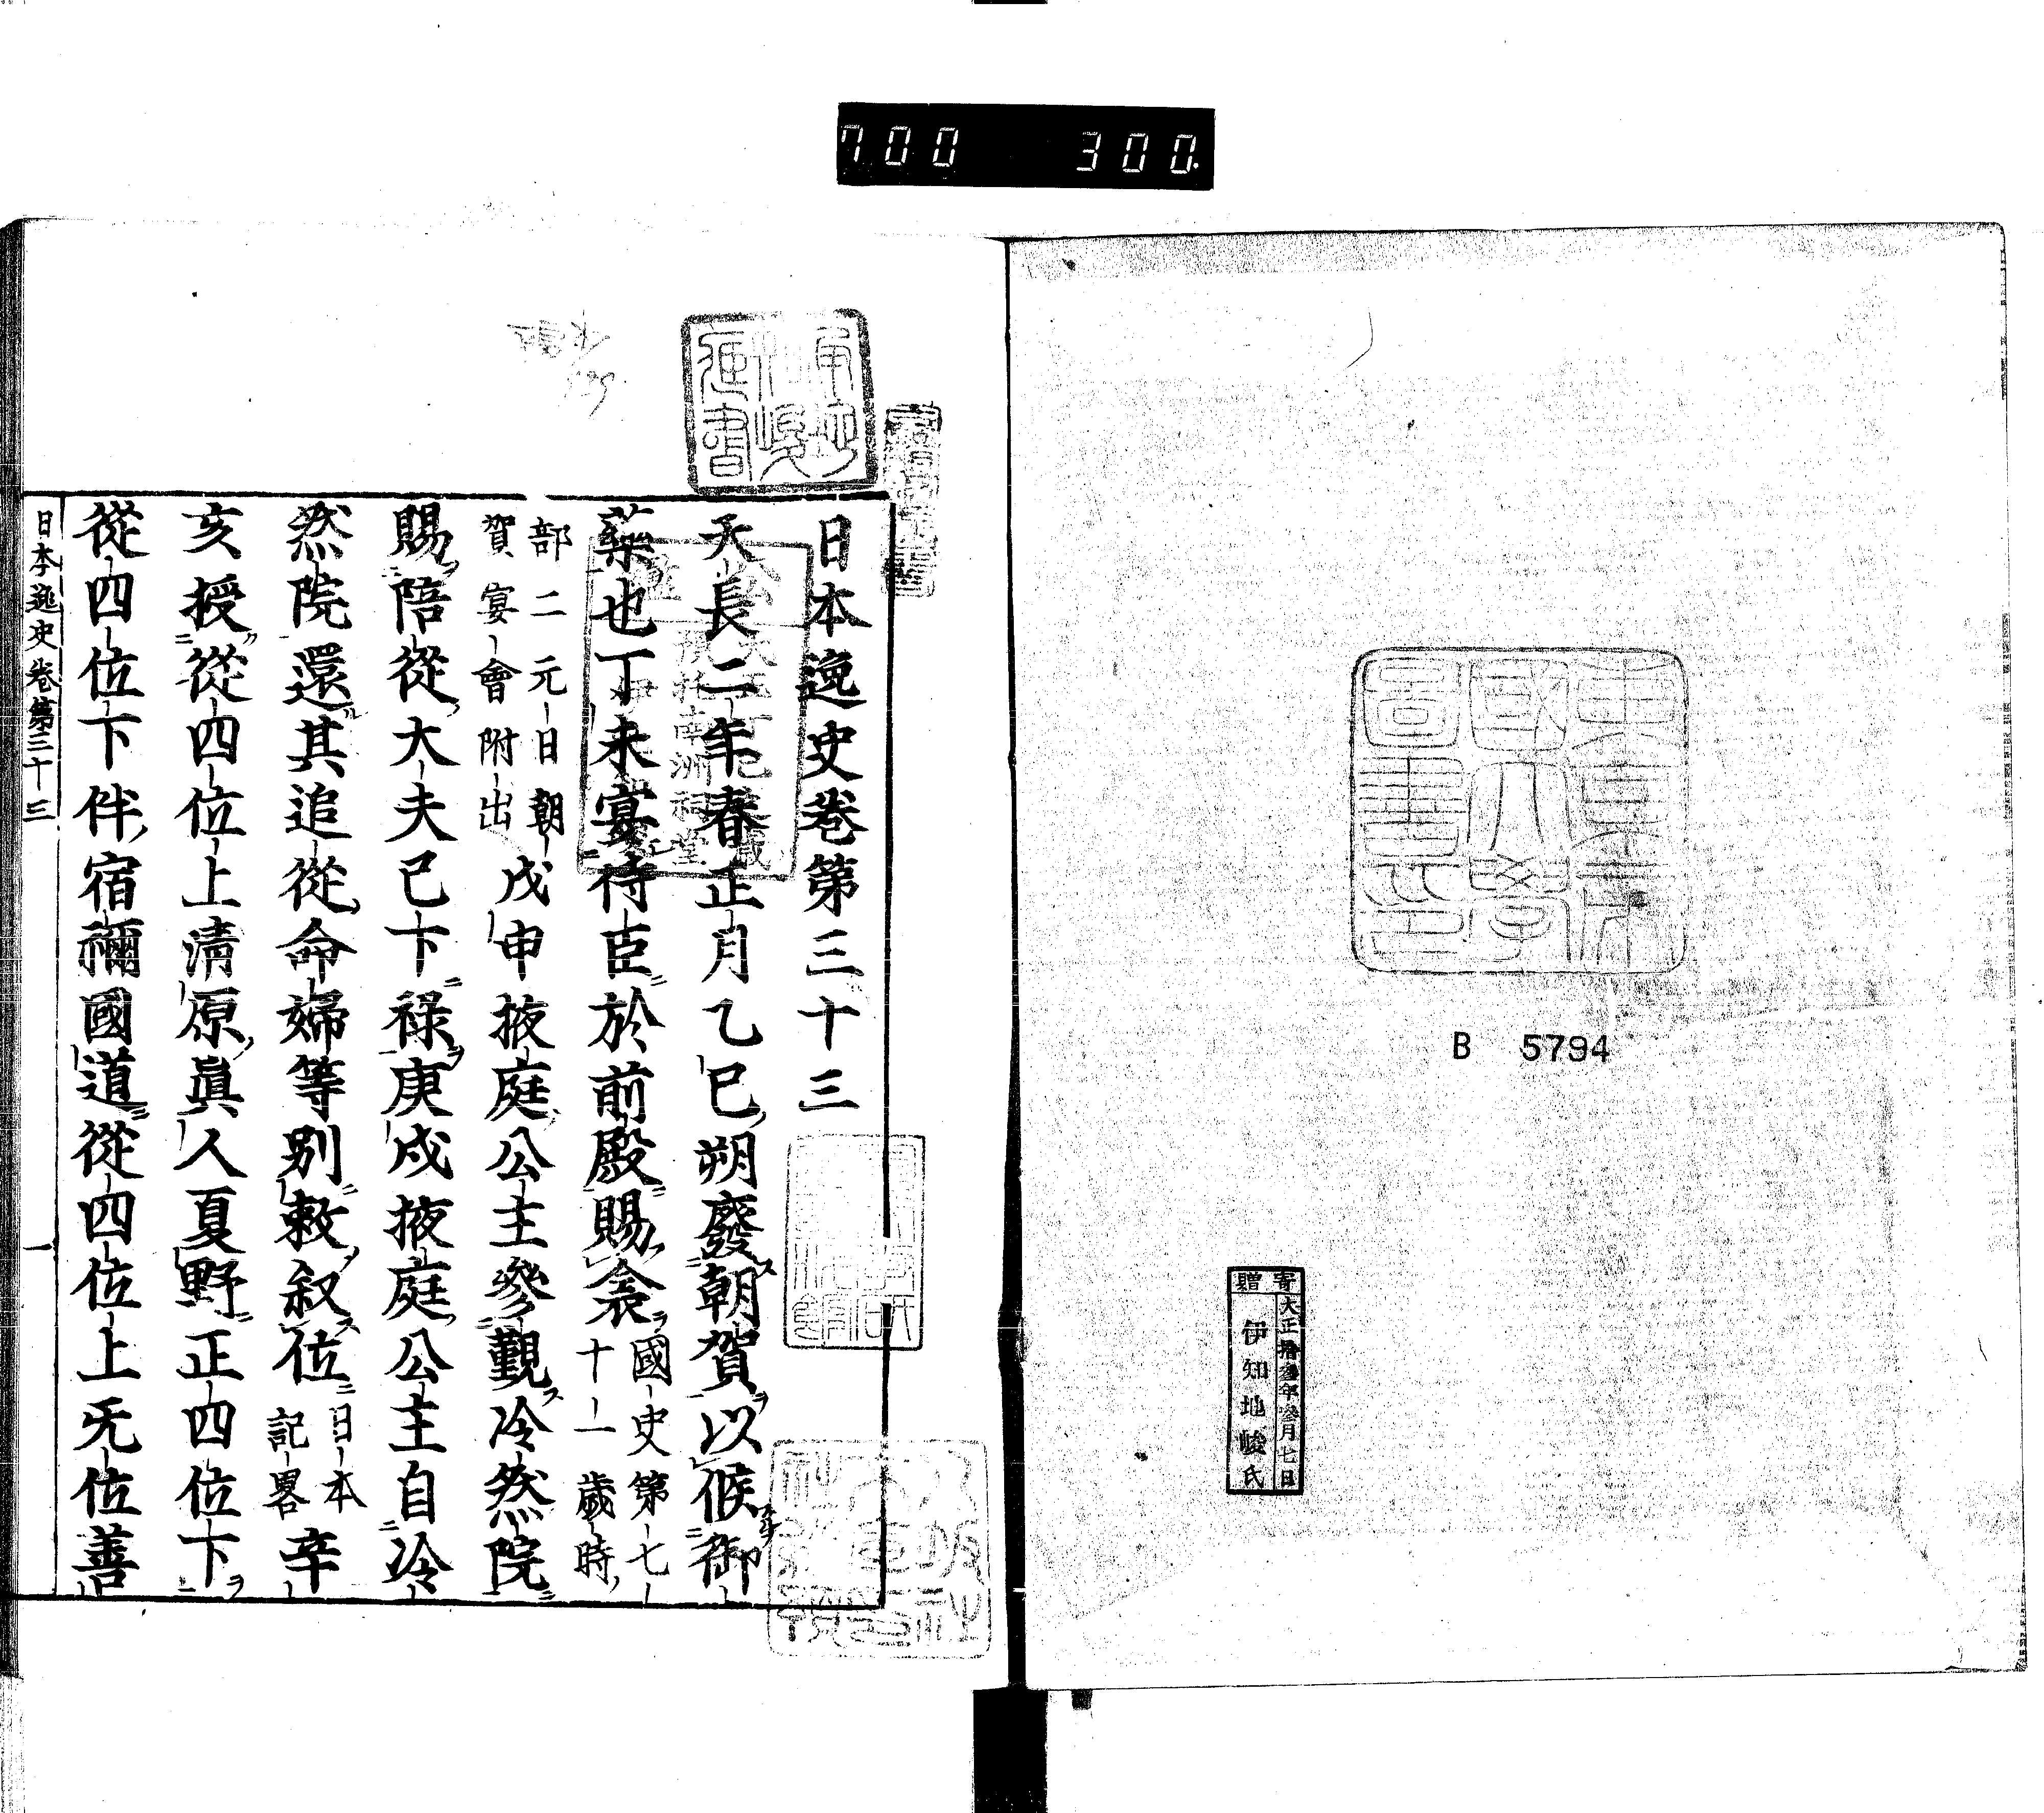 700 300.
東京帝國大學圖書印
B 5794
寄贈
大正拾參年參月七日
伊知地峻氏
日本逸史卷第三十三
天長二年春正月乙巳朔廢朝賀以候御
藥也丁未宴侍臣於前殿賜衾國史第七
十一歲時
部二元日朝
賀宴會附出戊申掖庭公主參觀冷然院
賜陪從大夫已下祿庚戌掖庭公主自冷
然院還其追從命婦等別敕叙位日本
記畧辛
亥授從四位上清原眞人夏野正四位下
從四位下伴宿禰國道從四位上无位善
日本逸史卷第三十三
一